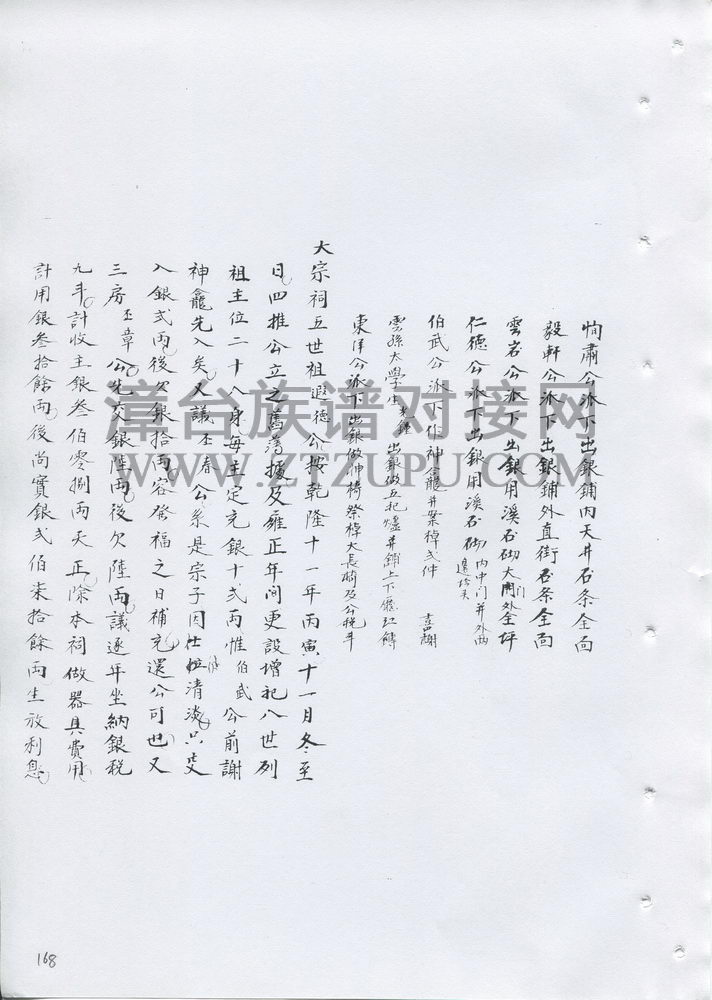 恂肅公派下出銀鋪內天井石条全向
毅軒公派下出銀鋪外直街石条全面
雲岩公派下出銀用溪石砌大門外全坪
仁德公派下出銀用溪石砌內中门并外两邊
伯武公派下作神龕并案棹弍件 喜謝
雲孫太學生 出銀做五祀爐并鋪上下廳紅磚
東洋公派下出銀做神椅祭棹大長椅及公稅斗
大宗祠五世祖遐德公按乾隆十一年丙寅十一月冬至
日四推公立之舊簿據及雍正年間更設增祀八世列
祖主位二十八身每主定充銀十弍両惟伯武公前謝
神龕先入矣又議丕春公系是宗子因仕 清淡只交
入銀弍両後欠銀拾両容發福之日補充還公可也又
三房丕章公先交銀陸両後欠陸両議逐年坐納銀税
九年計收主銀叁伯零捌両天正除本祠做器具費用
計用銀叁拾餘両後尚實銀弍伯柒拾餘両生放利息
168
漳台族谱对接网
WWW.ZTZUPU.COM